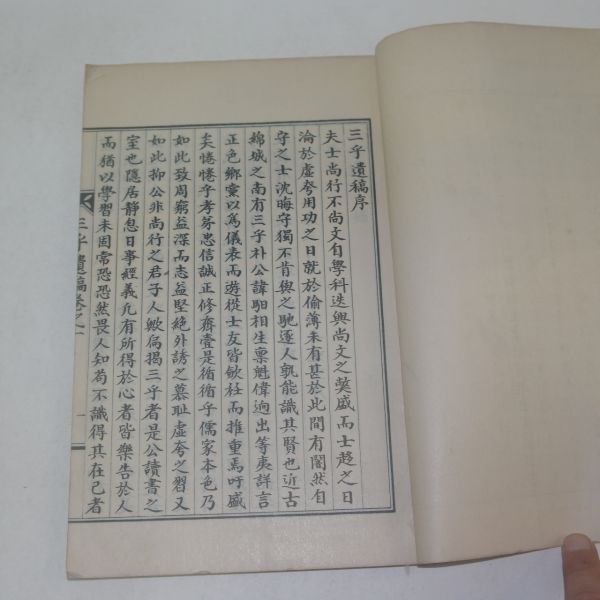 三乎遺稿序
夫士尚行不尚文自學科迭興尚文之獘盛而士趍之日
淪於虛夸用功之日就於偷薄未有甚於此間有闇然自
守之士沈晦守獨不肯與之馳逐人孰能識其賢也近古
錦城之南有三乎朴公諱馹相生禀魁偉逈出等夷詳言
正色鄉黨以爲儀表而遊從士友皆歛衽而推重焉吁盛
矣惓惓乎孝芽忠信誠正修齊壹是循循乎儒家本色乃
如此致周窮益深而志益堅絶外誘之慕耻虛夸之習又
如此抑公非尚行之君子人歟扁揭三乎者是公讀書之
室也隱居靜息日事經義凡有所得於心者皆樂告於人
而猶以學習未固常恐恐然畏人知苟不識得其在己者
三乎遺稿卷之一
一